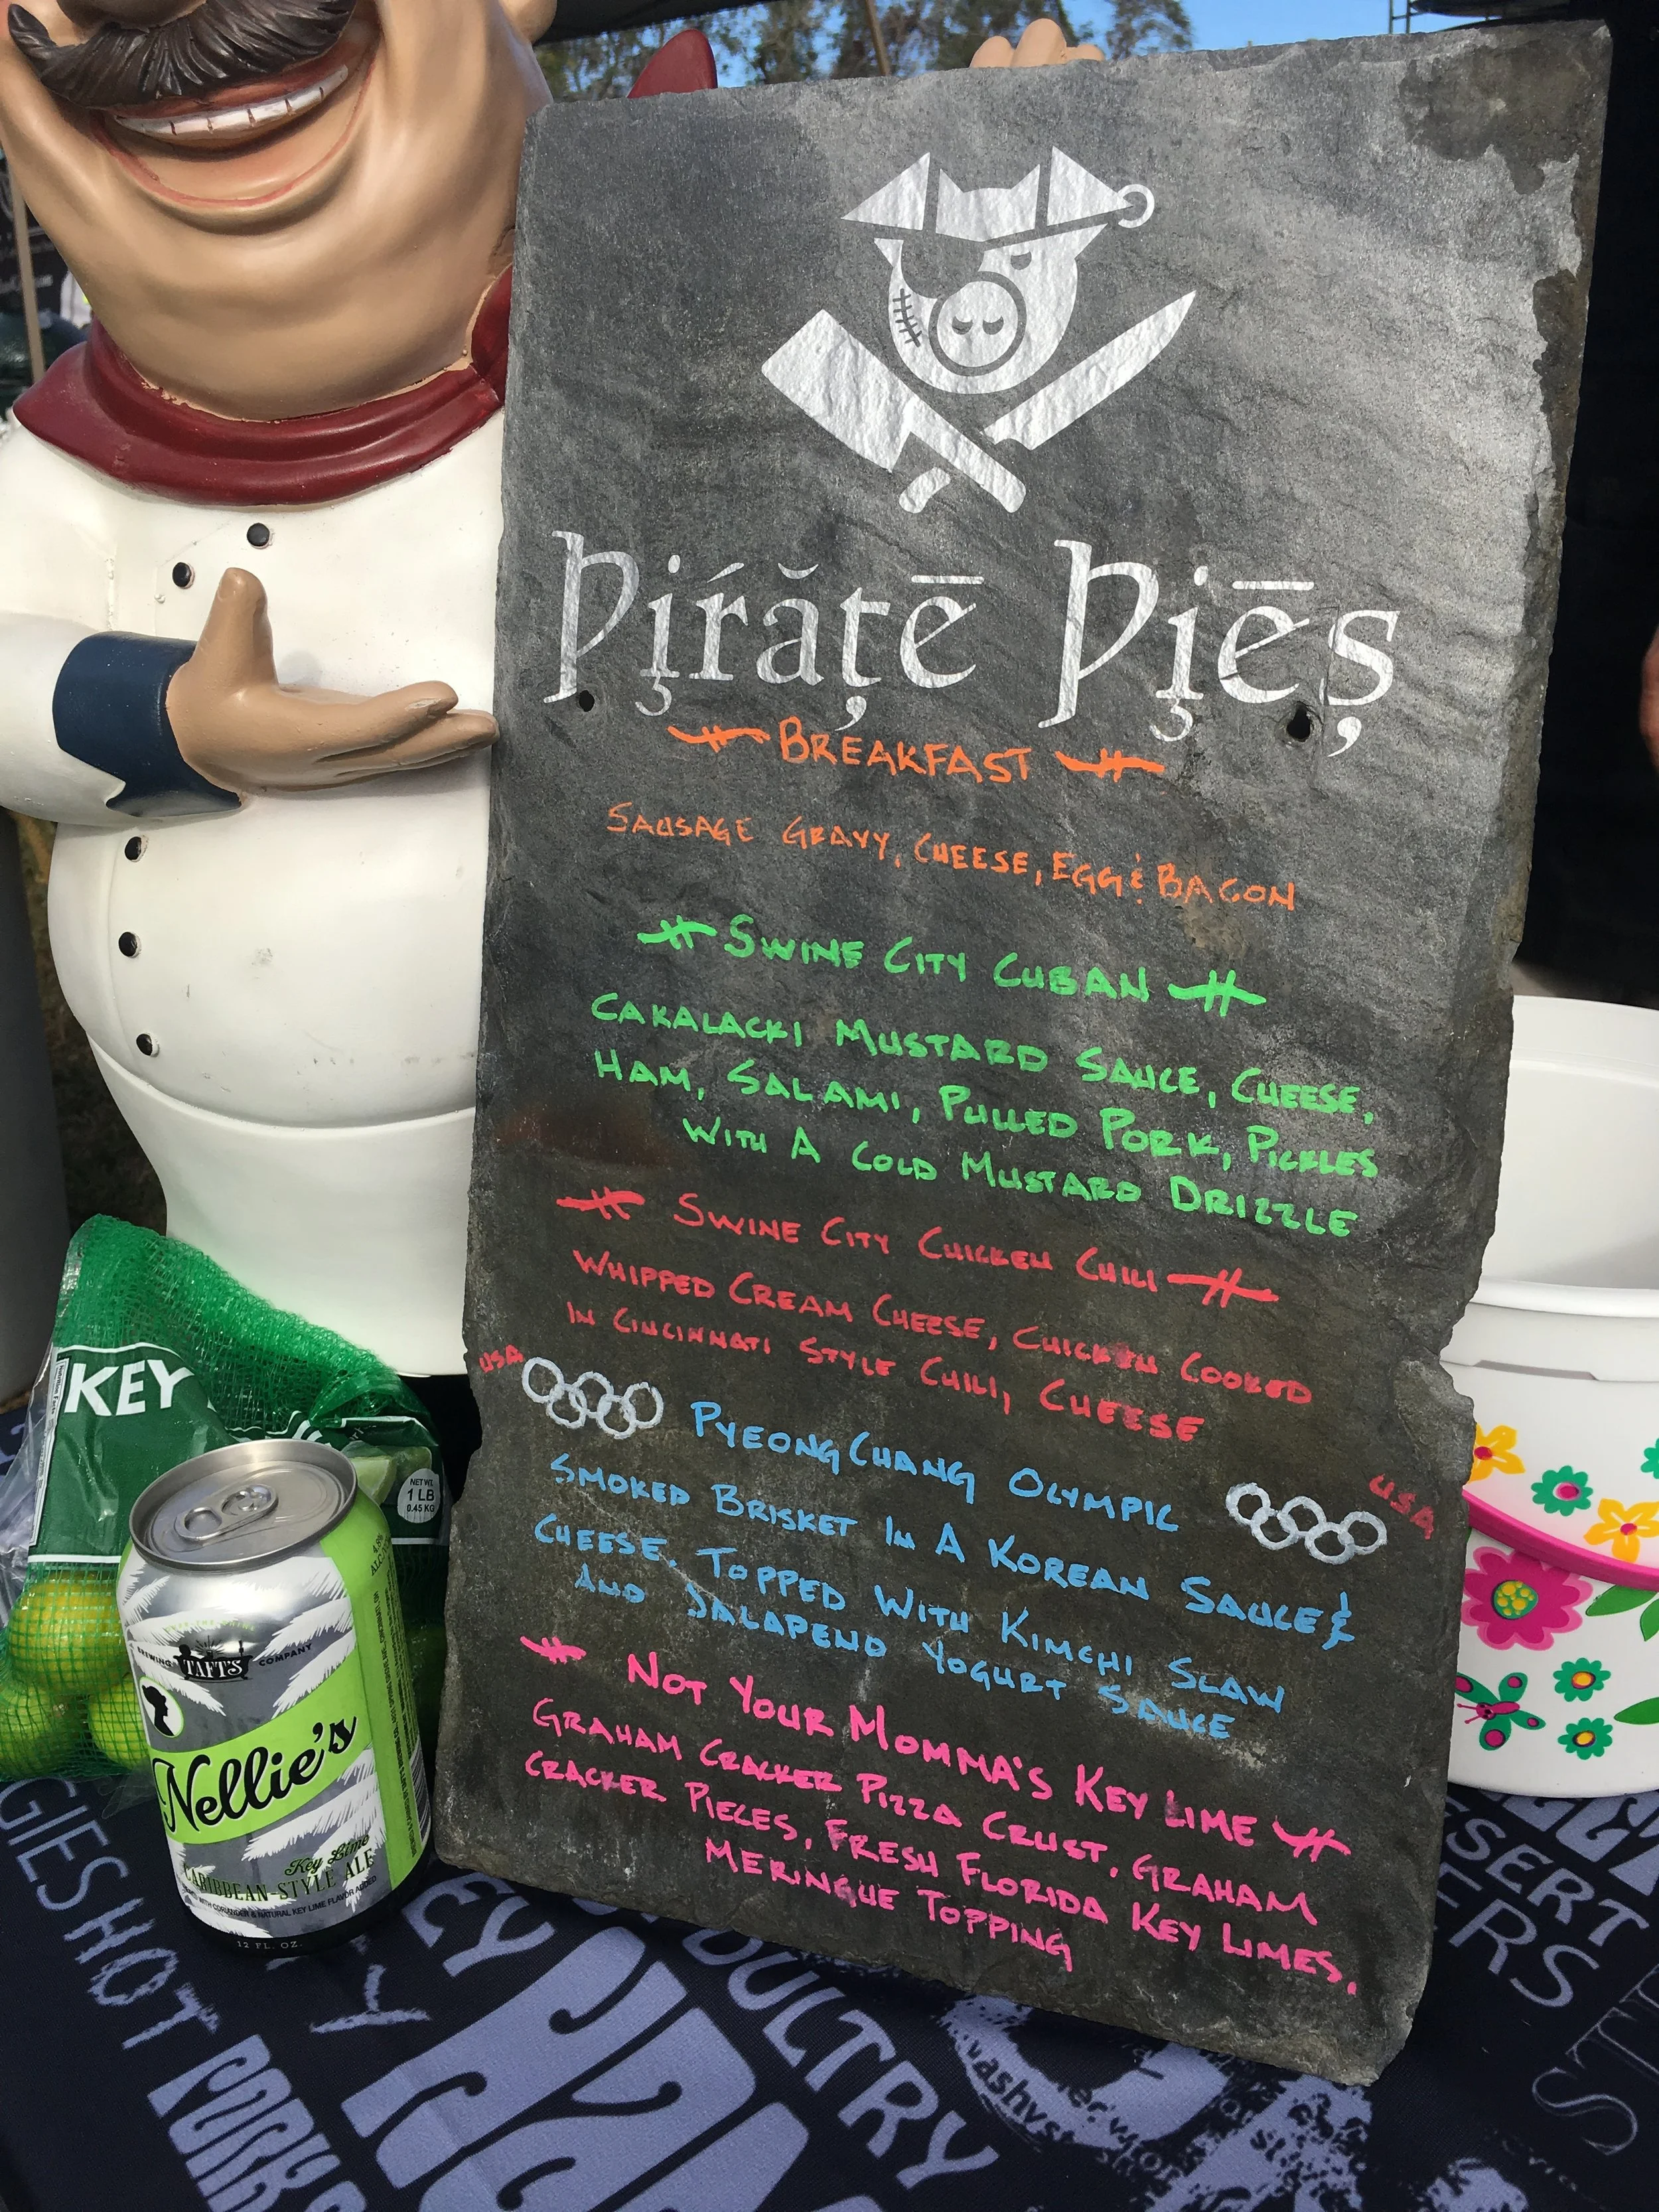 Pirate Pies
BREAKFAST
SAUSAGE GRAVY, CHEESE, EGG & BACON
SWINE CITY CUBAN
CAKALACKI MUSTARD SAUCE, CHEESE,
HAM, SALAMI, PULLED PORK, PICKLES
WITH A COLD MUSTARD DRIZZLE
SWINE CITY CHICKEN CHILI
WHIPPED CREAM CHEESE, CHICKEN COOKED
IN CINCINNATI STYLE CHILI, CHEESE
USA
PYEONGCHANG OLYMPIC
USA
SMOKED BRISKET IN A KOREAN SAUCE &
CHEESE. TOPPED WITH KIMCHI SLAW
AND JALAPENO YOGURT SAUCE
NOT YOUR MOMMA'S KEY LIME
GRAHAM CRACKER PIZZA CRUST, GRAHAM
CRACKER PIECES, FRESH FLORIDA KEY LIMES,
MERINGUE TOPPING
KEY
NET WT.
1 LB
0.45 KG
BREWING TAFT'S COMPANY
Nellie's
Key Lime
CARIBBEAN-STYLE ALE
CORIANDER & NATURAL KEY LIME FLAVOR ADDED
12 FL. OZ.
GIES HOT
PORK
EY
PIZZ
POULTRY
SSERT